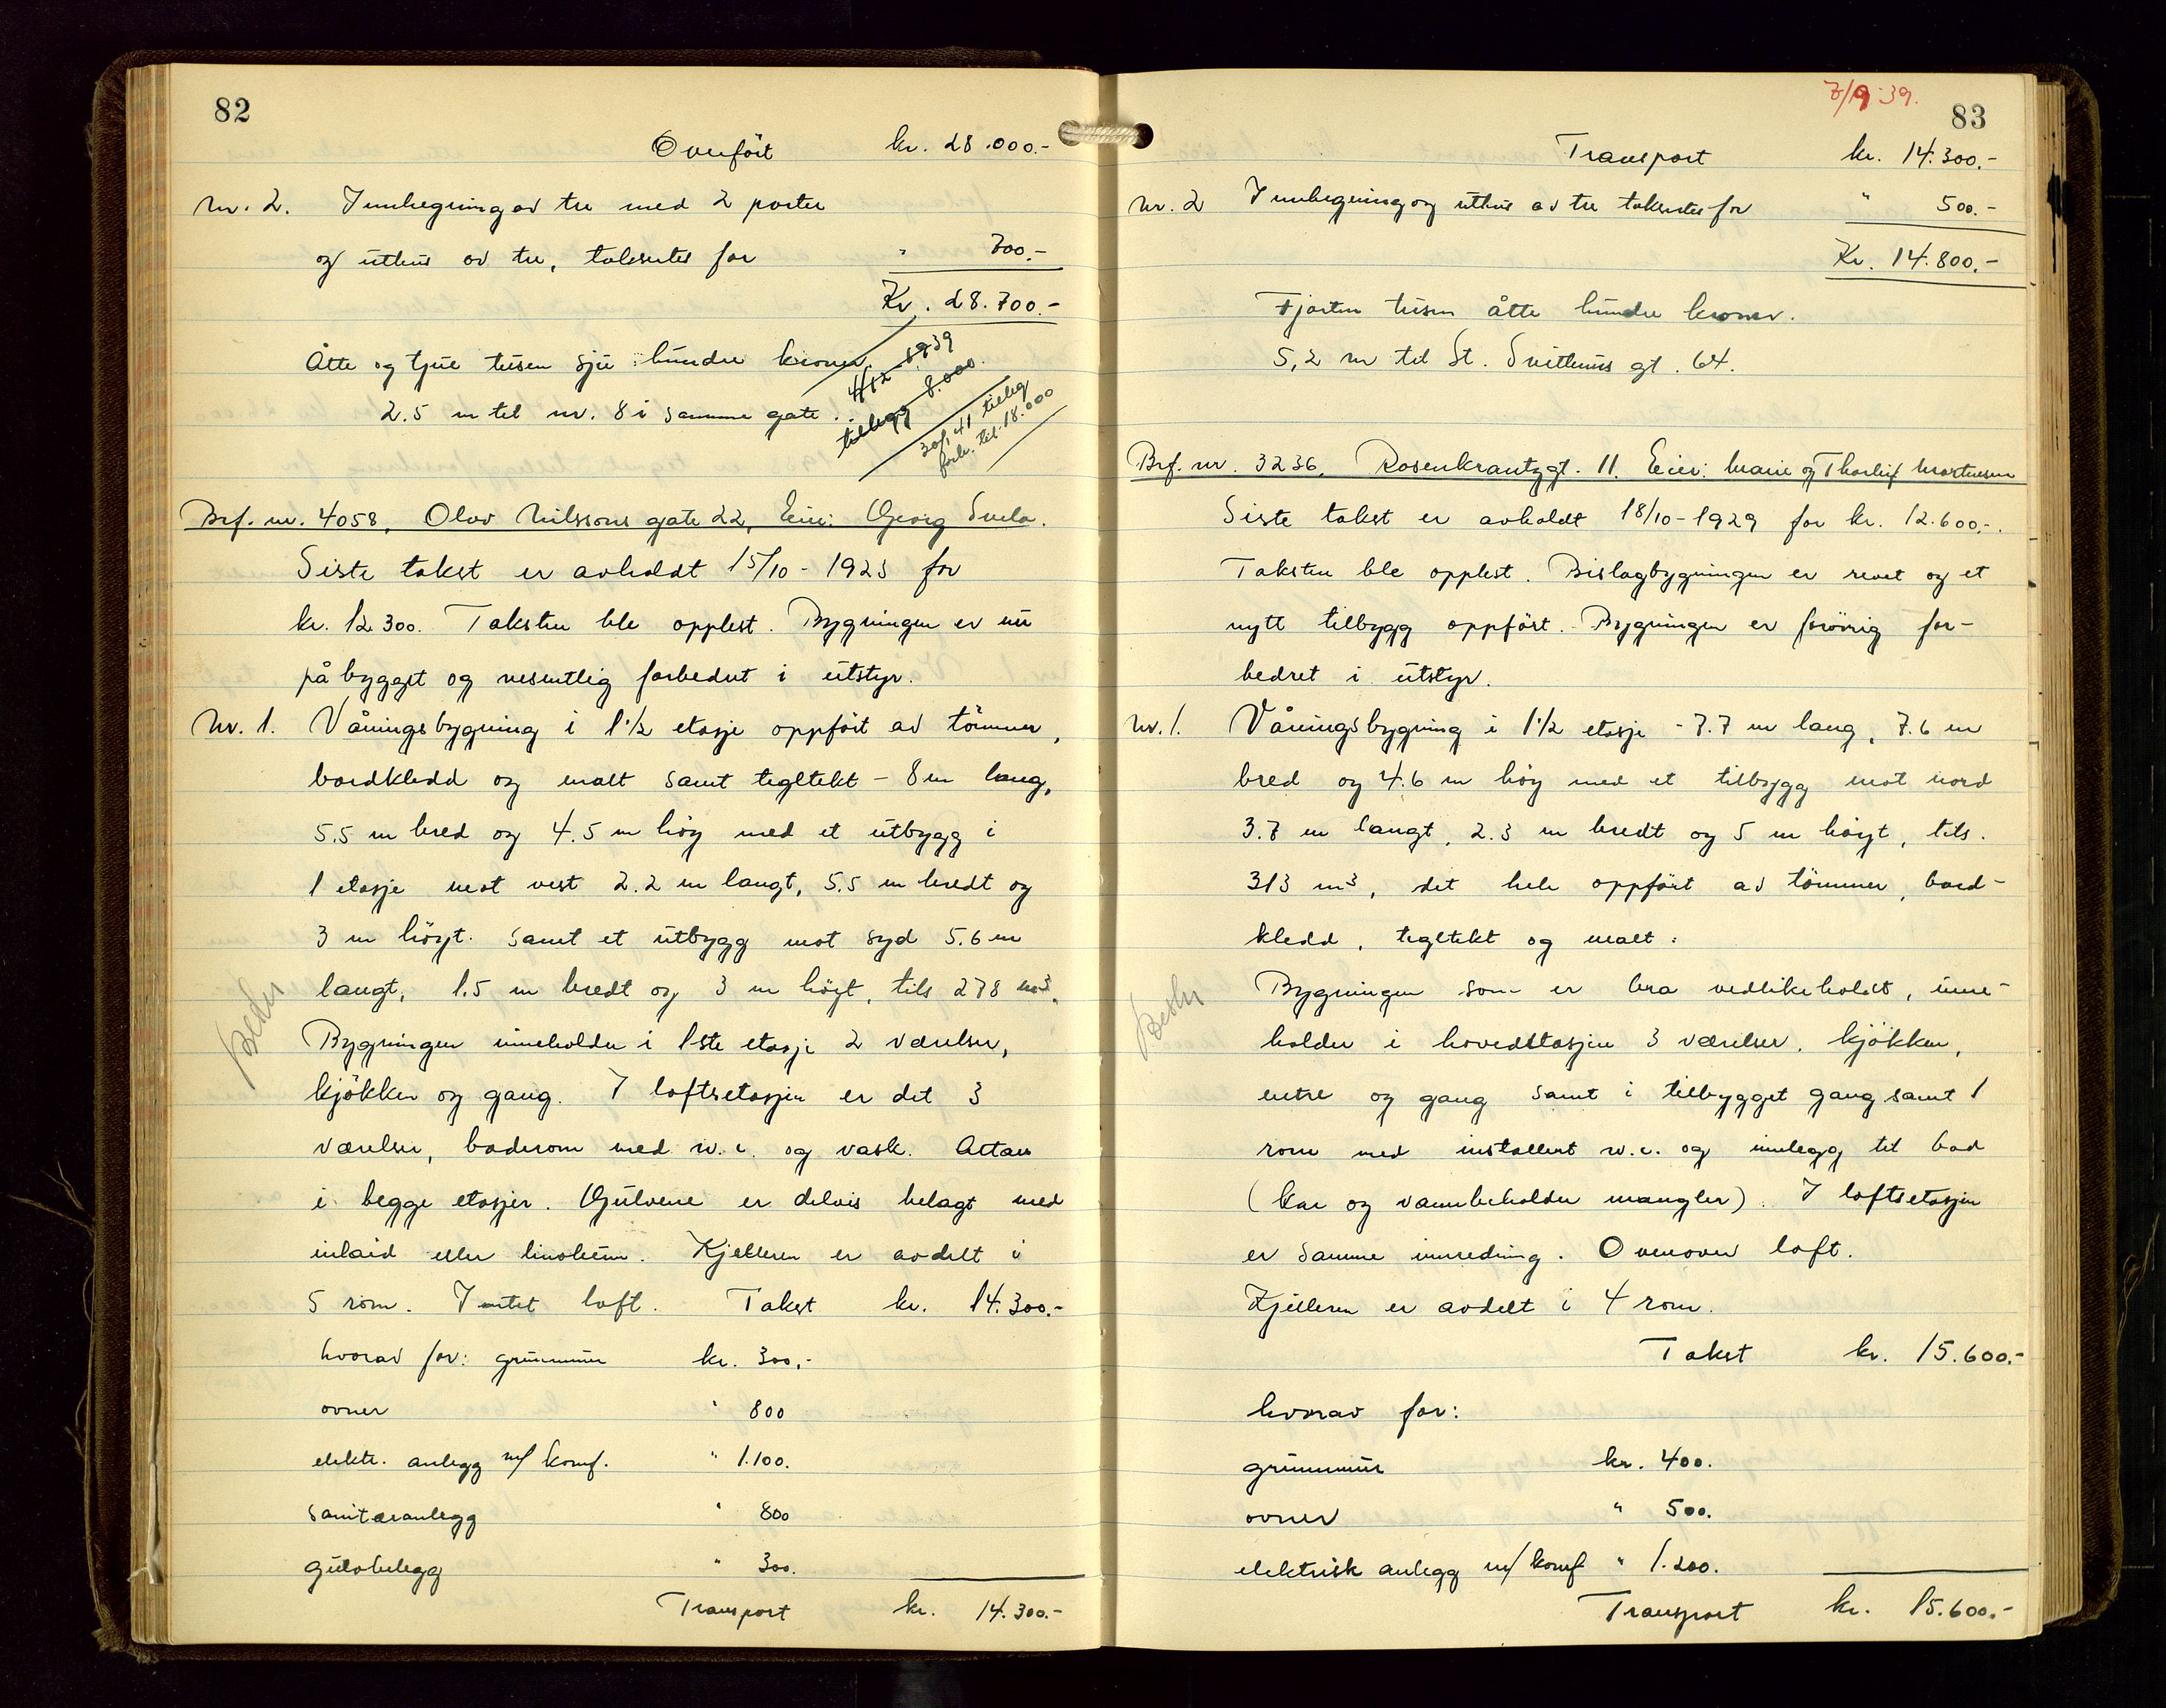 82
Overført kr. 28.000.-
Nr. 2. Innhegning av tre med 2 porter
og uthus av tre, takseres for " 700.-
Kr. 28.700.-
Åtte og tjue tusen sju hundre kroner.
2.5 m til nr. 8 i samme gate.
4/12 1939
tillegg 8.000.
30/1 41 tillegg
forh. til 18.000
Brf. nr. 4058, Olav Nilssons gate 22, Eier: Georg Svela.
Siste takst er avholdt 15/10 - 1923 for
kr. 12.300. Taksten ble opplest. Bygningen er nu
på bygget og vesentlig forbedret i utstyr.
Nr. 1. Våningsbygning i 1 1/2 etasje oppført av tömmer,
bordkledd og malt samt tegltekt - 8 m lang,
5.5 m bred og 4.5 m höy med et utbygg i
1 etasje mot vest 2.2 m langt, 5.5 m bredt og
3 m höyt. Samt et utbygg mot syd 5.6 m
langt, 1.5 m bredt og 3 m höyt, tils 278 m³.
Bygningen inneholder i 1ste etasje 2 værelser,
kjökken og gang. I loftsetasjen er det 3
værelser, baderom med w.c. og vask. Altan
i begge etasjer. Gulvene er delvis belagt med
inlaid eller linoleum. Kjelleren er avdelt i
5 rom. Intet loft. Takst kr. 14.300.-
hvorav for: grunnmur kr. 300,-
ovner " 800
elektr. anlegg m/ komf. " 1.100.
Sanitæranlegg " 800
gulvbelegg " 300.
Transport kr. 14.300.-
7/9 39.
83
Transport kr. 14.300.-
Nr. 2 Innhegning og uthus av tre takseres for " 500.-
Kr. 14.800.-
Fjorten tusen åtte hundre kroner.
5,2 m til St. Svithuns gt. 64.
Brf. nr. 3236. Rosenkrantzgt. 11. Eier: Marie og Thorleif Mortensen
Siste takst er avholdt 18/10 - 1929 for kr. 12.600.-.
Taksten ble opplest. Bislagbygningen er revet og et
nytt tilbygg oppført. Bygningen er forövrig for-
bedret i utstyr.
Nr. 1. Våningsbygning i 1 1/2 etasje - 7.7 m lang, 7.6 m
bred og 4.6 m höy med et tilbygg mot nord
3.7 m langt, 2.3 m bredt og 5 m höyt, tils.
313 m³, det hele oppfört av tömmer, bord-
kledd, tegltekt og malt.
Bygningen som er bra vedlikeholdt, inne-
holder i hovedetasjen 3 værelser, kjökken,
entre og gang samt i tilbygget gang samt 1
rom med installert w.c. og innlegg til bad
(kar og vannbeholder mangler). I loftsetasjen
er samme innredning. Ovenover loft.
Kjelleren er avdelt i 4 rom.
Takst kr. 15.600.-
hvorav for:
grunnmur kr. 400.
ovner " 500.
elektrisk anlegg m/ komf " 1.200.
Transport kr. 15.600.-